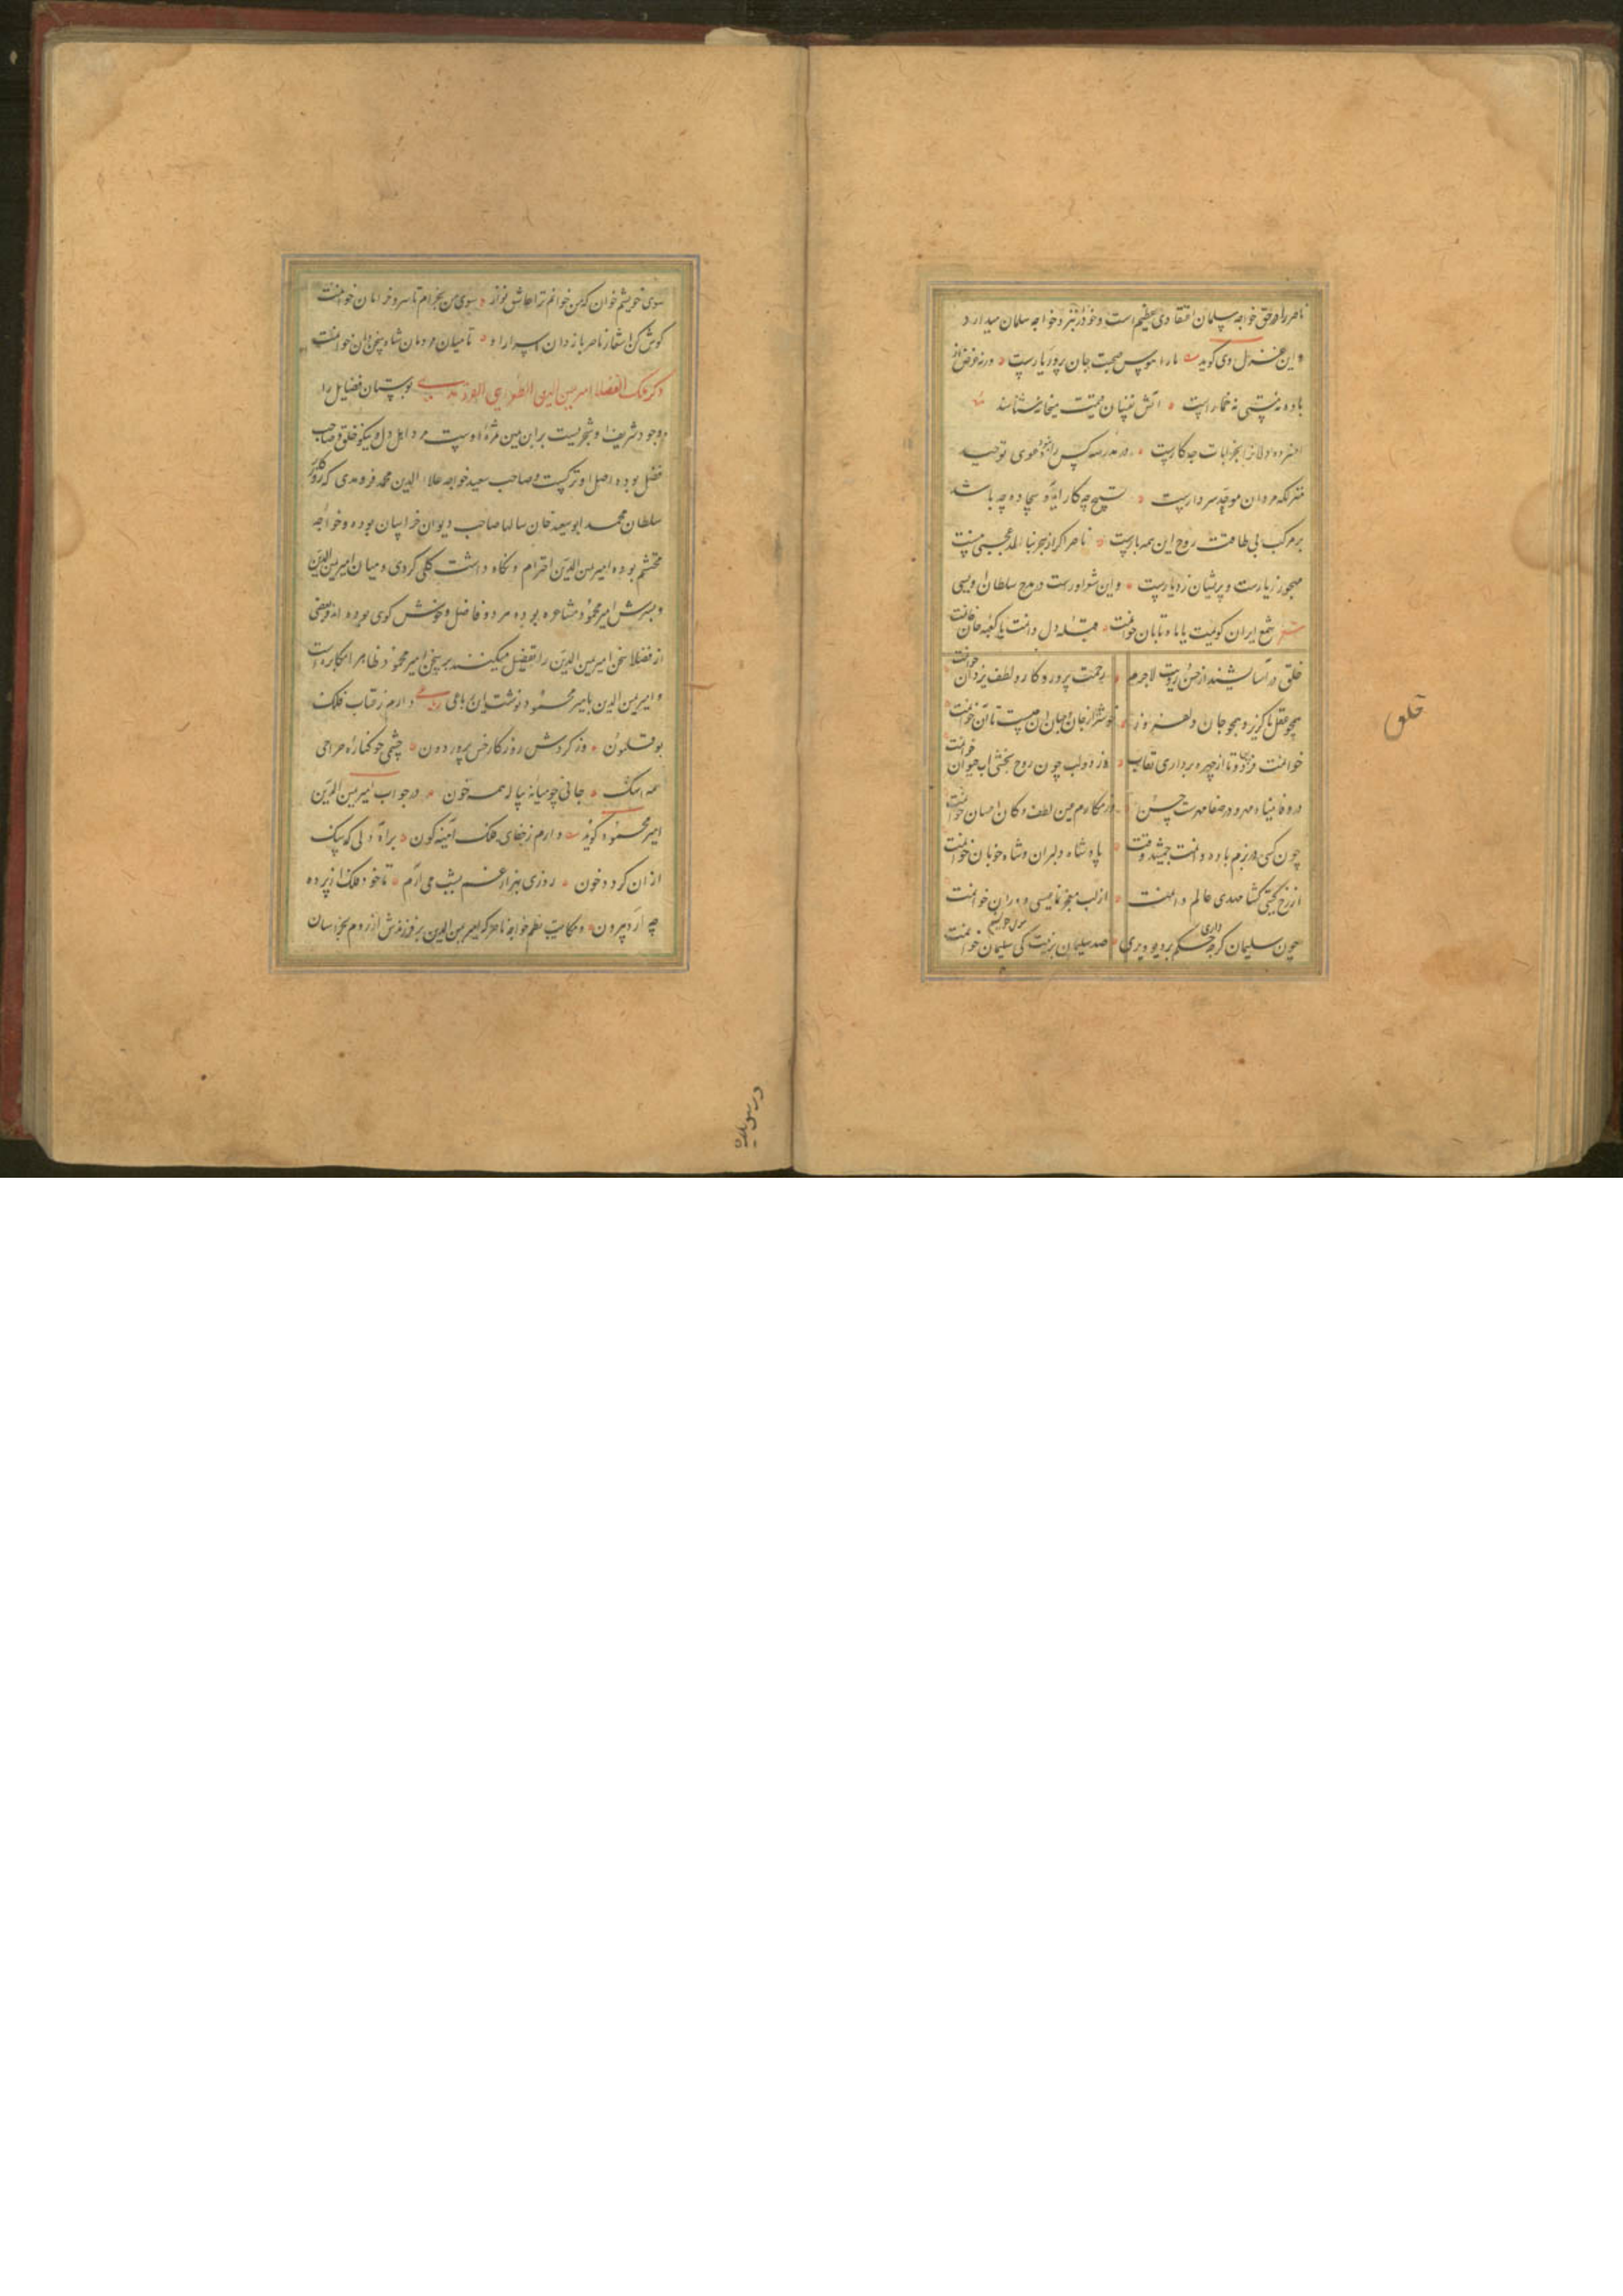 ناصر را در حق خواجه سلمان اعتقادی عظیم است و خود را نزد خواجه سلمان میدارد
و این غزل وی گوید ما را هوس صحبت جان پرور یارست ورنه غرض از
باده نه مستی نه خمارست آتش نفسان قیمت میخانه شناسند
افسرده دلانرا بخرابات چه کارست در مدرسه کس را نبود دعوی توحید
منزلگه مردان موحد سر دارست تسبیح چه کار آید و سجاده چه باشد
بر مرکب بی طاقت روح این همه بارست ناصر اگر از هجر بنالد عجبی نیست
مهجور ز یارست و پریشان ز دیارست و این شعر اوراست در مدح سلطان اویس
شعر شمع ایران گویمت یا ماه تابان خوانمت قبله دل دانمت یا کعبه جان خوانمت
خلقی در آسایشند از حسن رویت لاجرم رحمت پروردگار و لطف یزدان خوانمت
همچو عقل ناگزیر و همچو جان و خوشتر از جان و جهان آن چیست تا آن خوانمت
خوانمت تا از چهره برداری نقاب وز دو لب چون روح بخشی آب حیوان خوانمت
در وفا مهر و در صفا حسن در مکارم عین لطف و کان احسان خوانمت
چون کنی در بزم باده دانمت جمشید وقت پادشاه دلبران و شاه خوبان خوانمت
از رخ گیتی گشا مهدی عالم دانمت از لب معجز نما عیسی دوران خوانمت
چون سلیمان گرچه داری حکم بر دیو و پری صد سلیمان بر درت کی سلیمان خوانمت
خلق
سوی خویشم خوان که من خوانم ترا عاشق نواز سوی من بخرام تا سرو خرامان خوانمت
گوش کن اشعار ناصر باز دان اسرار او تا میان مردمان شاه سخن دان خوانمت
ذکر ملک الفضلا امیر یمین الدین الطغرایی الفریومدی بوستان فضایل را
وجود شریف او شجریست بر ابن یمین مرد اهل دل و نیکو خلق و صاحب
فضل بوده اصل او ترکست و صاحب سعید خواجه علاء الدین محمد فریومدی که بروزگار
سلطان محمد ابوسعید خان سالها صاحب دیوان خراسان بوده و خواجه
محتشم بوده امیر یمین الدین احترام و نگاه داشت کلی کردی و میان امیر یمین الدین
و پسرش امیر محمود مشاعره بوده هر دو فاضل و خوش گوی بوده اند و بعضی
از فضلا سخن امیر یمین الدین را تفضیل میکنند بر سخن امیر محمود ظاهرا مکابره است
و امیر یمین الدین بامیر محمود نوشت این رباعی دارم ز عتاب فلک
بوقلمون وز گردش روزگار خس پرور دون چشمی چو کناره صراحی
همه اشک جانی چو میانه پیاله همه خون در جواب امیر یمین الدین
امیر محمود گوید دارم ز جفای فلک آینه گون پر آه دلی که سنگ
از آن گردد خون روزی بهزار غم بشب می آرم تا خود فلک از پرده
چه آرد بیرون و مکاتیب نظم که امیر یمین الدین بفرزندش از روم بخراسان